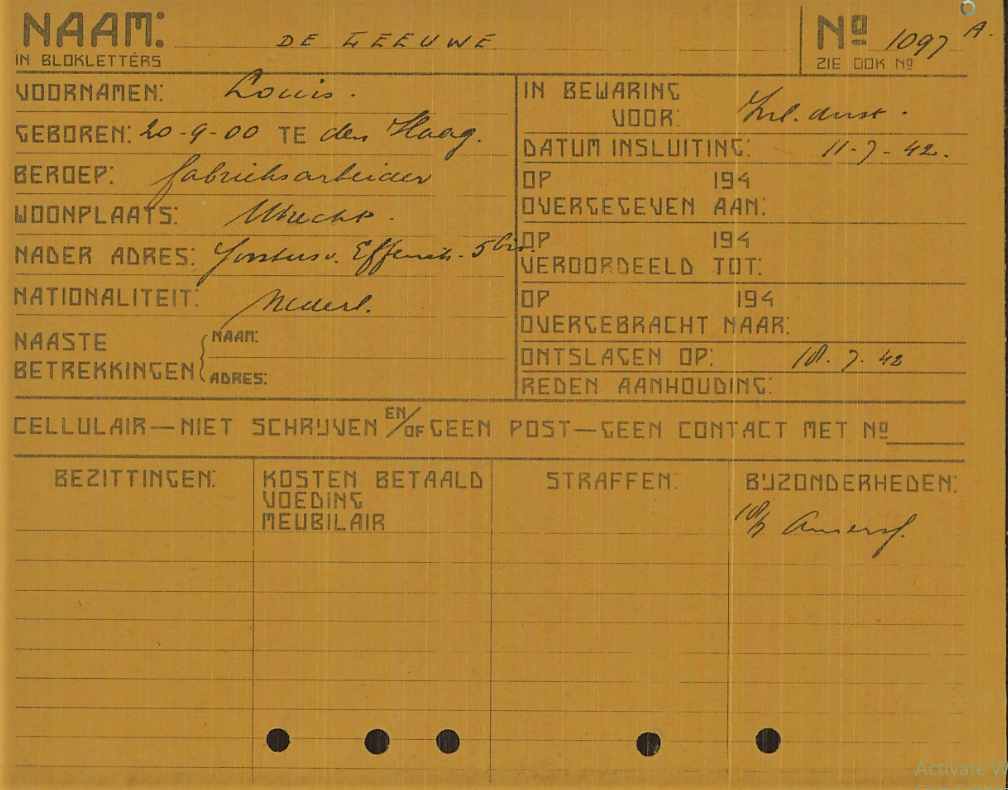 NAAM: DE LEEUWE
IN BLOKLETTERS
Nº 1097 A.
ZIE OOK Nº
VOORNAMEN: Louis.
GEBOREN: 20-9-00 TE den Haag.
BEROEP: fabrieksarbeider
WOONPLAATS: Utrecht.
NADER ADRES: 5 bis.
NATIONALITEIT: Nederl.
NAASTE BETREKKINGEN
NAAM:
ADRES:
IN BEWARING
VOOR:
DATUM INSLUITING: 11-7-42.
OP 194
OVERGEGEVEN AAN:
OP 194
VEROORDEELD TOT:
OP 194
OVERGEBRACHT NAAR:
ONTSLAGEN OP: 18.7.42
REDEN AANHOUDING:
CELLULAIR—NIET SCHRIJVEN EN/OF GEEN POST—GEEN CONTACT MET Nº
BEZITTINGEN:
KOSTEN BETAALD
VOEDING
MEUBILAIR
STRAFFEN:
BIJZONDERHEDEN:
18/7 Amersf.
Activate W